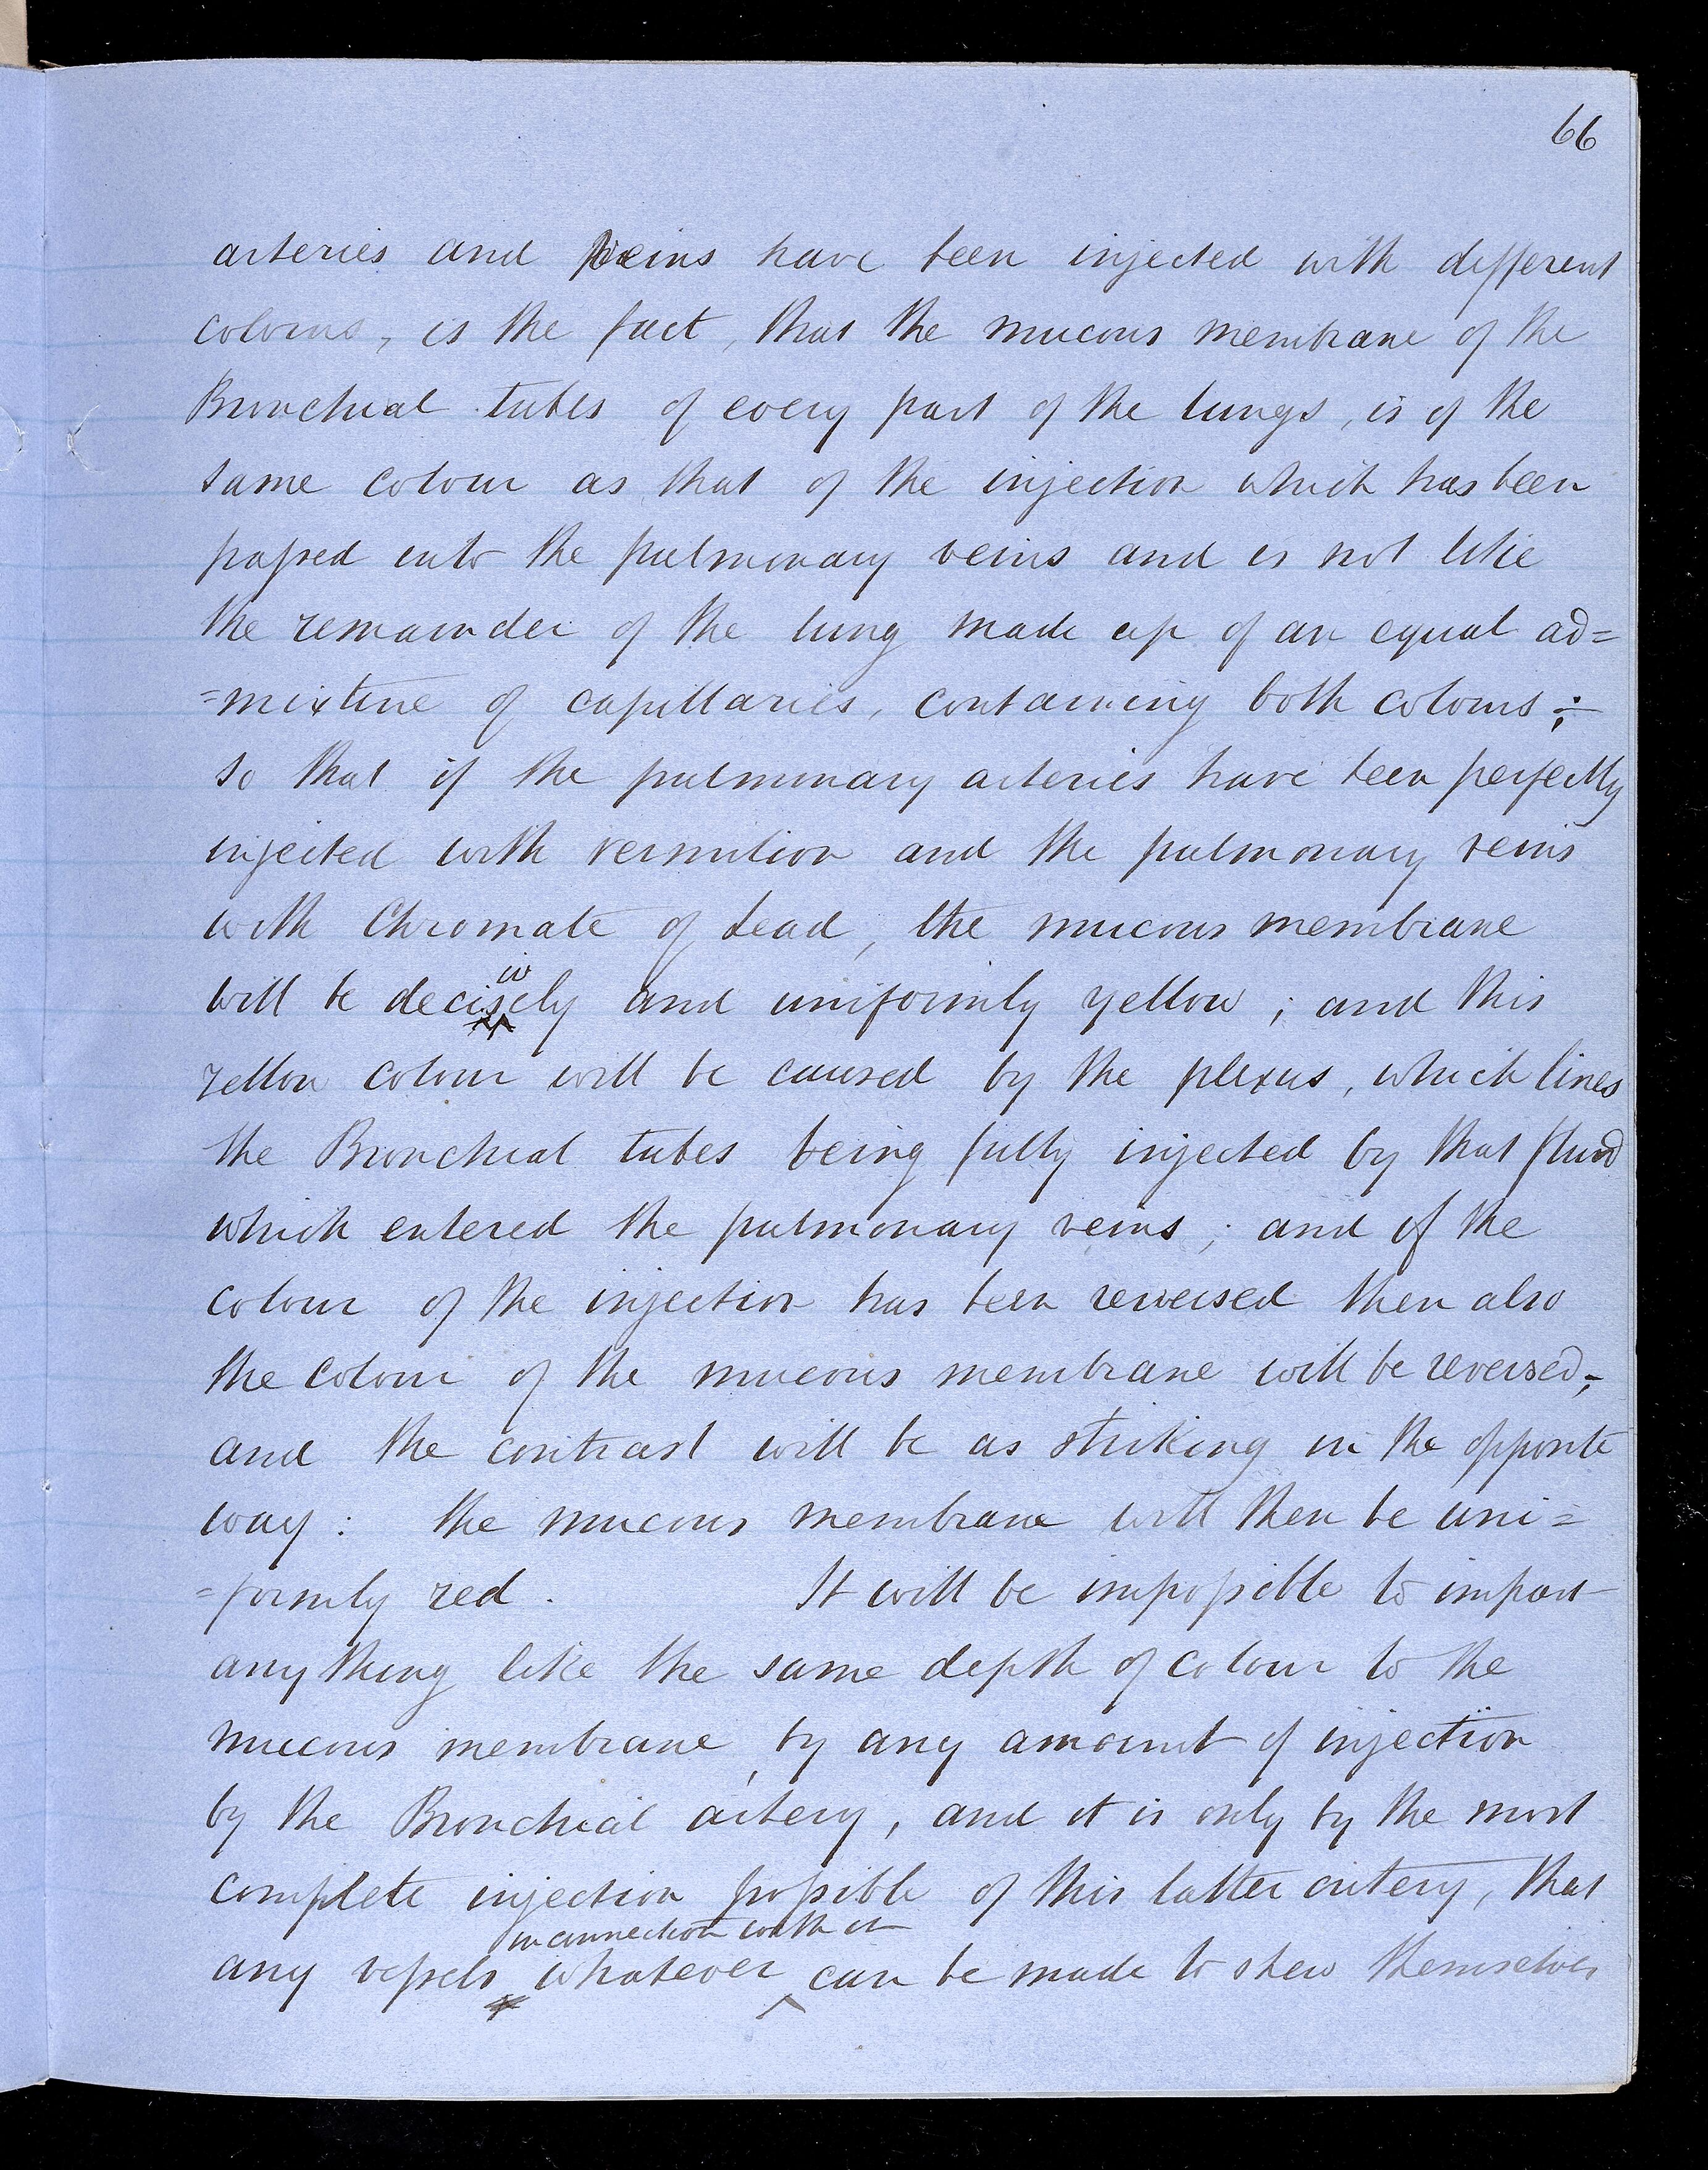 66
arteries and veins have been injected with different
colours, is the fact, that the mucous membrane of the
Bronchial tubes of every part of the lungs, is of the
same colour as that of the injection which has been
passed into the pulmonary veins and is not like
the remainder of the lung made up of an equal ad=
=mixture of capillaries, containing both colours;
so that if the pulmonary arteries have been perfectly
injected with vermilion and the pulmonary veins
with Chromate of Lead, the mucous membrane
will be decisively and uniformly yellow; and this
yellow colour will be caused by the plexus, which lines
the Bronchial tubes being fully injected by that fluid
which entered the pulmonary veins; and if the
colour of the injection has been reversed then also
the colour of the mucous membrane will be reversed;
and the contrast will be as striking in the opposite
way: the mucous membrane will then be uni=
=formly red. It will be impossible to impart
any thing like the same depth of colour to the
mucous membrane, by any amount of injection
by the Bronchial artery, and it is only by the most
complete injection possible of this latter artery, that
in connection with it
any vessels whatever can be made to shew themselves